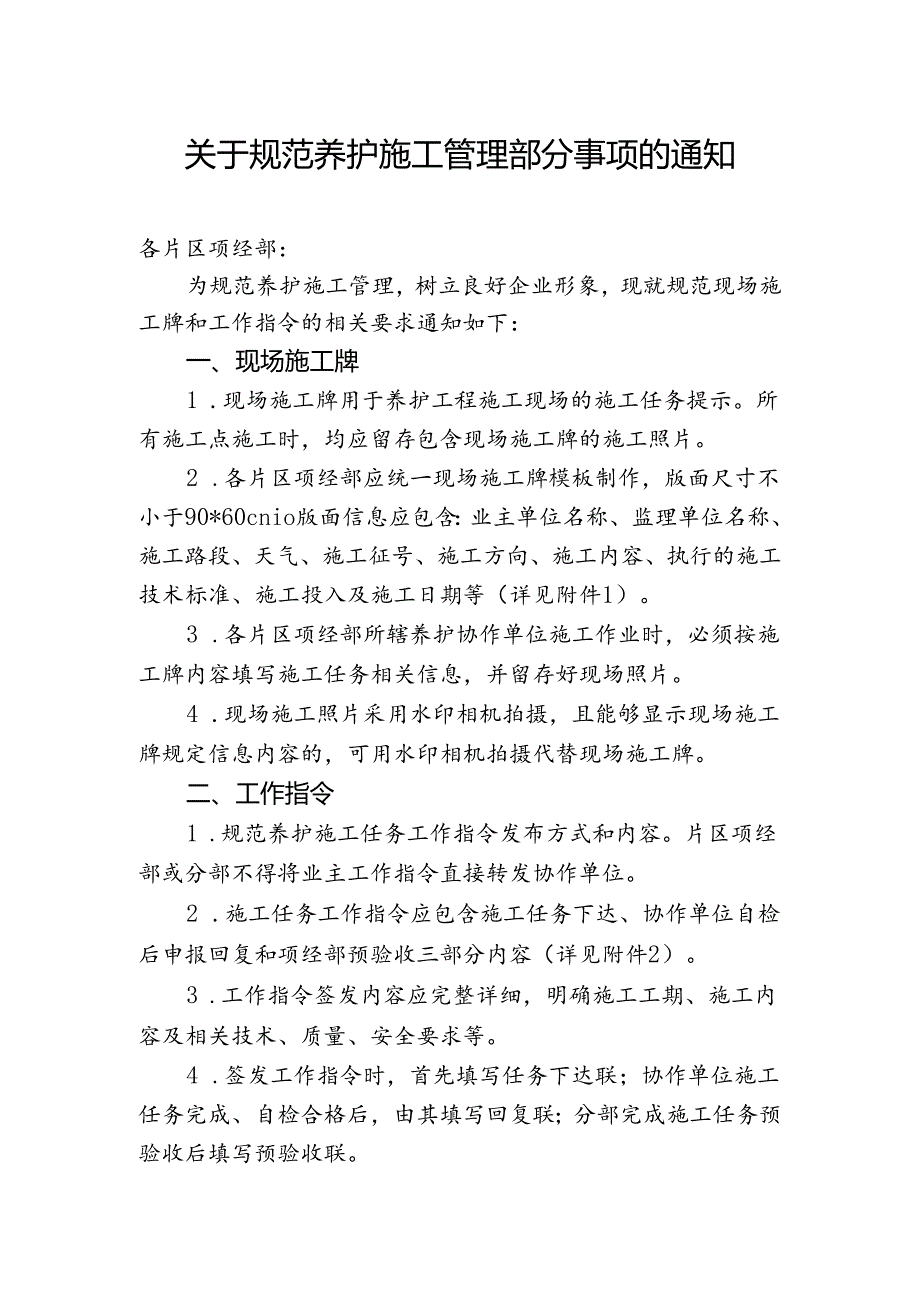 关于规范养护施工管理部分事项的通知
各片区项经部：
为规范养护施工管理，树立良好企业形象，现就规范现场施
工牌和工作指令的相关要求通知如下：
一、现场施工牌
1 .现场施工牌用于养护工程施工现场的施工任务提示。所
有施工点施工时，均应留存包含现场施工牌的施工照片。
2 .各片区项经部应统一现场施工牌模板制作，版面尺寸不
小于90*60cnio版面信息应包含：业主单位名称、监理单位名称、
施工路段、天气、施工征号、施工方向、施工内容、执行的施工
技术标准、施工投入及施工日期等（详见附件1）。
3 .各片区项经部所辖养护协作单位施工作业时，必须按施
工牌内容填写施工任务相关信息，并留存好现场照片。
4 .现场施工照片采用水印相机拍摄，且能够显示现场施工
牌规定信息内容的，可用水印相机拍摄代替现场施工牌。
二、工作指令
1 .规范养护施工任务工作指令发布方式和内容。片区项经
部或分部不得将业主工作指令直接转发协作单位。
2 .施工任务工作指令应包含施工任务下达、协作单位自检
后申报回复和项经部预验收三部分内容（详见附件2）。
3 .工作指令签发内容应完整详细，明确施工工期、施工内
容及相关技术、质量、安全要求等。
4 .签发工作指令时，首先填写任务下达联；协作单位施工
任务完成、自检合格后，由其填写回复联；分部完成施工任务预
验收后填写预验收联。